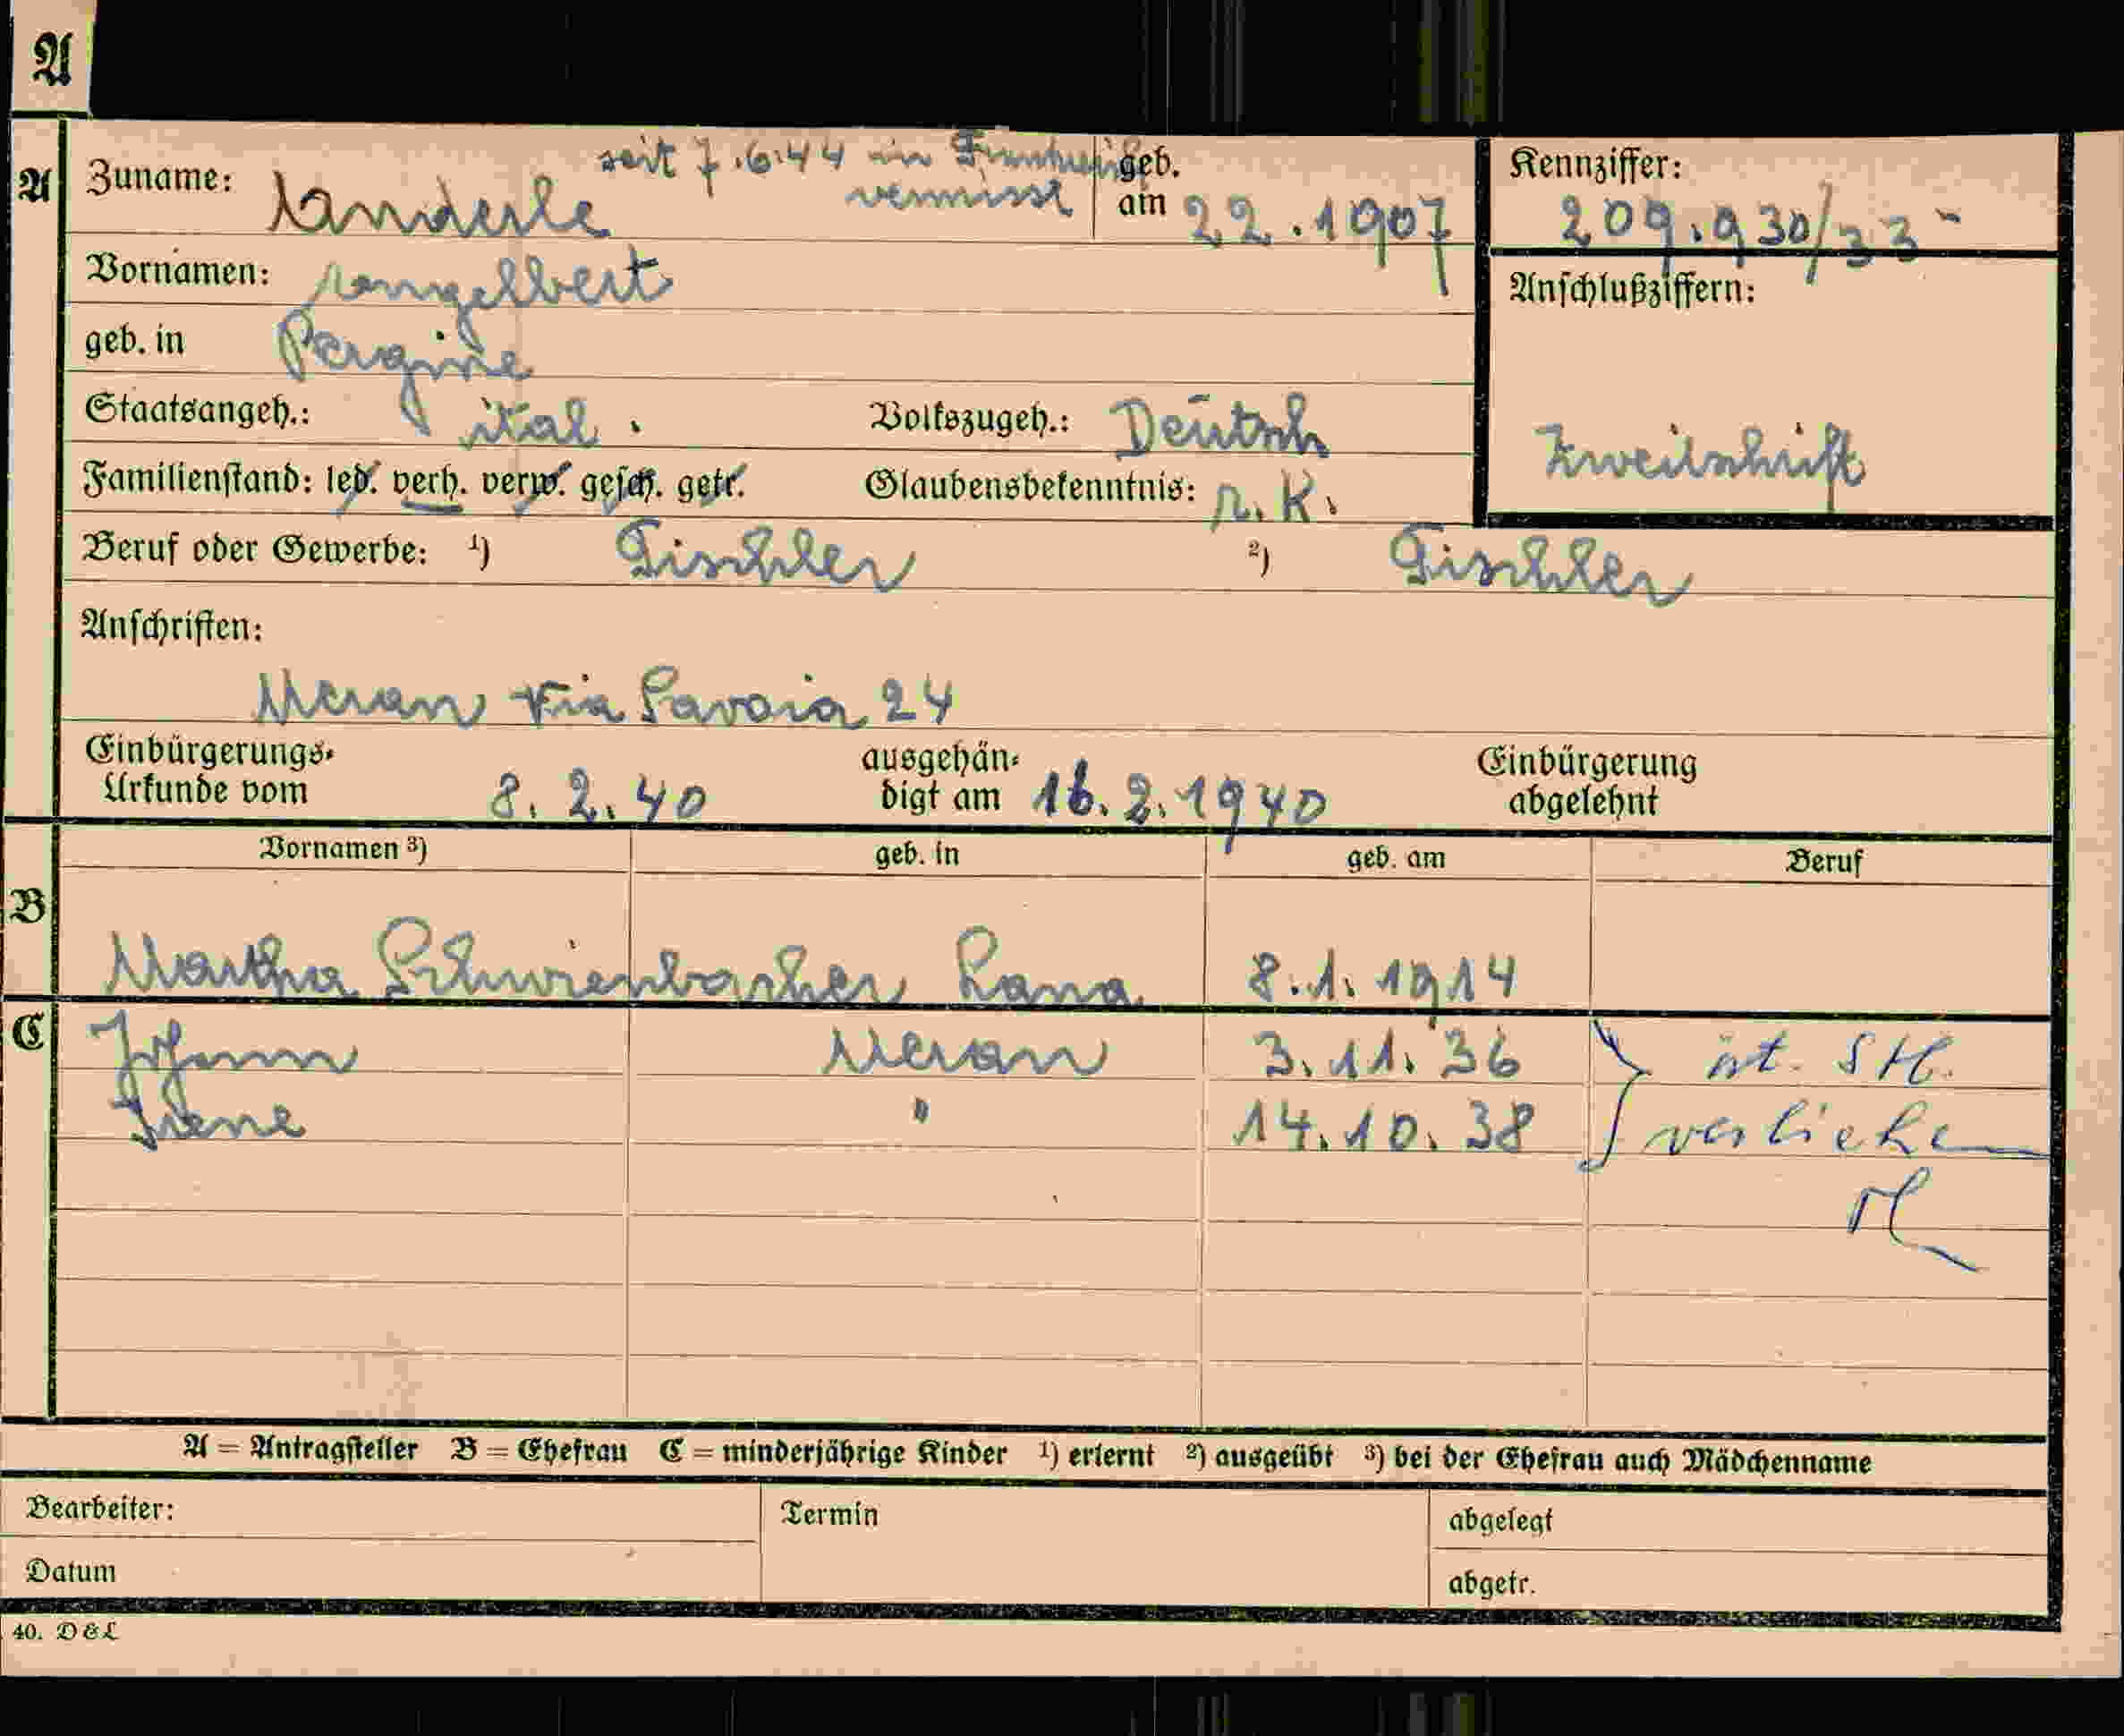 A
A
seit 7.6.44 in Frankreich
vermisst
Zuname: Anderle geb. am 22.1907
Kennziffer: 209.930/33
Vornamen: Engelbert
Anschlußziffern:
geb. in Pergine
Staatsangeh.: ital. Volkszugeh.: Deutsch
Zweitschrift
Familienstand: led. verh. verw. gesch. getr. Glaubensbekenntnis: r.k.
Beruf oder Gewerbe: 1) Tischler 2) Tischler
Anschriften:
Meran Via Savoia 24
Einbürgerungs-Urkunde vom 8.2.40 ausgehändigt am 16.2.1940 Einbürgerung abgelehnt
Vornamen 3) geb. in geb. am Beruf
B
Martha Schwienbacher Lana 8.1.1914
C
Johann Meran 3.11.36 öst. Stb.
Irene " 14.10.38 verliehen
A = Antragsteller B = Ehefrau C = minderjährige Kinder 1) erlernt 2) ausgeübt 3) bei der Ehefrau auch Mädchenname
Bearbeiter: Termin abgelegt
Datum abgetr.
40. D&L